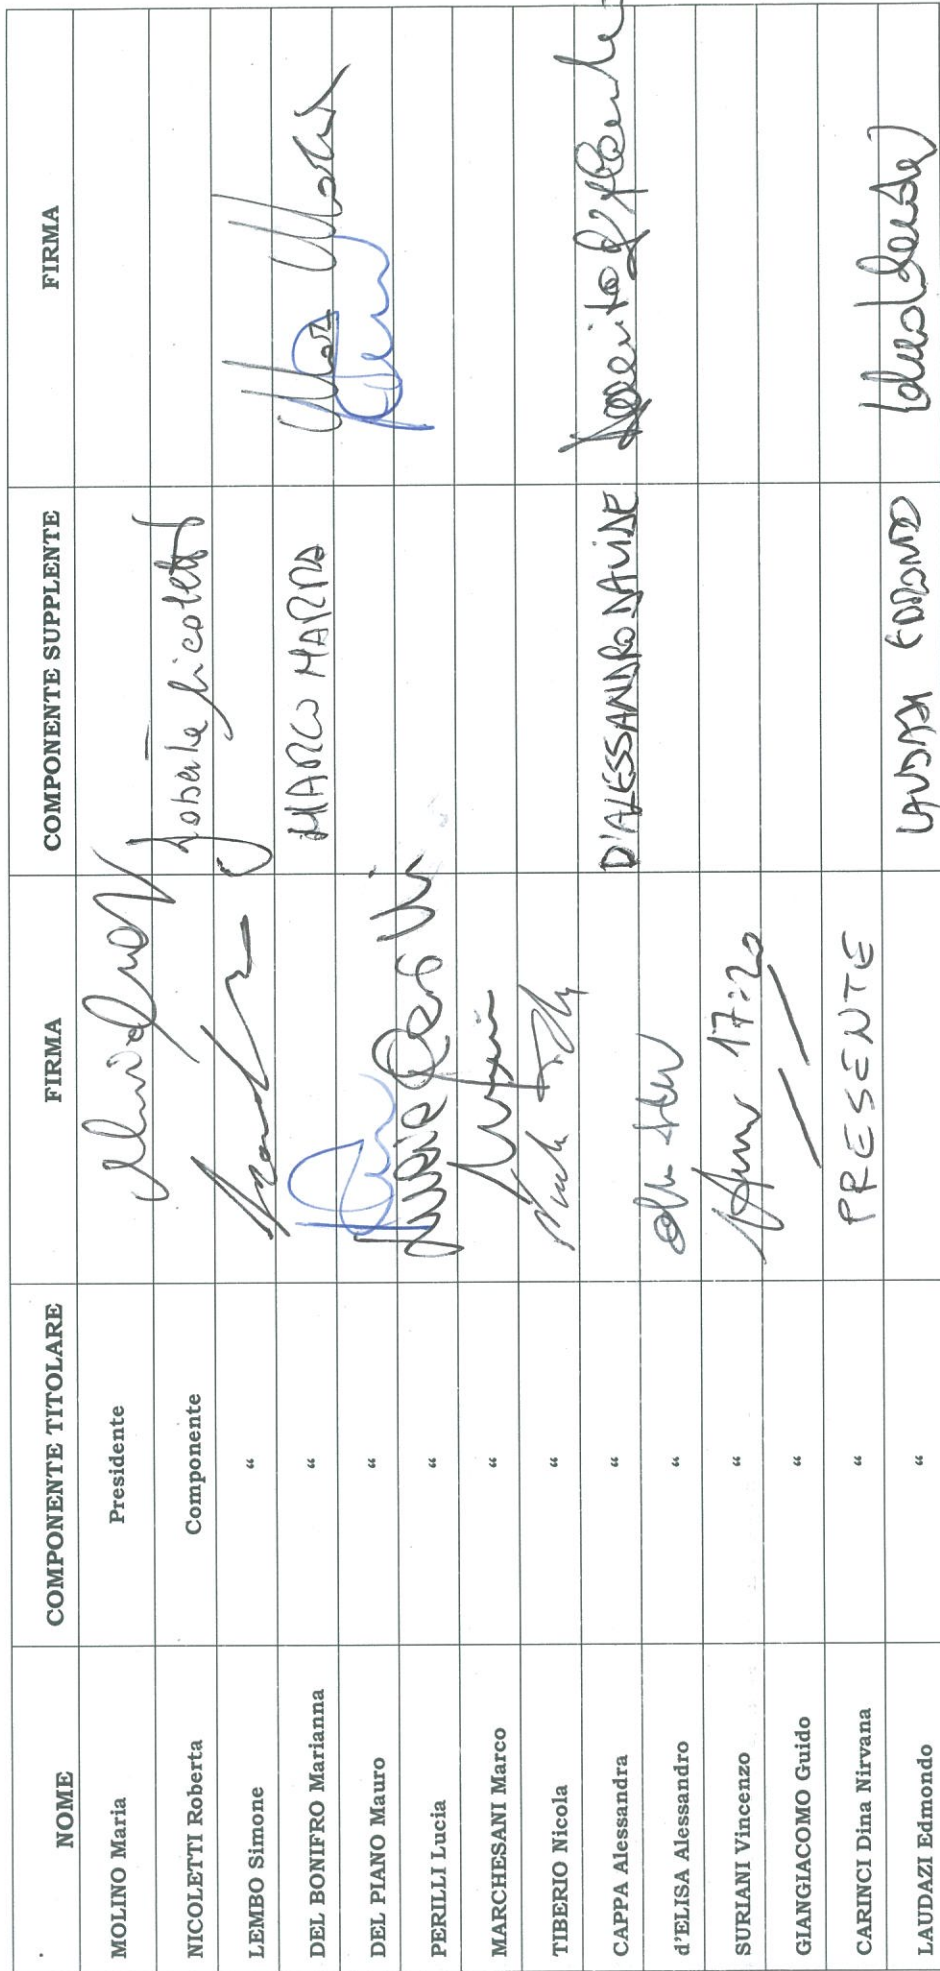 NOME COMPONENTE TITOLARE FIRMA COMPONENTE SUPPLENTE FIRMA
MOLINO Maria Presidente
NICOLETTI Roberta Componente Roberta Nicoletti
LEMBO Simone “
DEL BONIFRO Marianna “ MARCO MARRA
DEL PIANO Mauro “
PERILLI Lucia “ Lucia Perilli
MARCHESANI Marco “
TIBERIO Nicola “
CAPPA Alessandra “ D'ALESSANDRO DAVIDE
d'ELISA Alessandro “
SURIANI Vincenzo “ 17:20
GIANGIACOMO Guido “ — —
CARINCI Dina Nirvana “ PRESENTE
LAUDAZI Edmondo “ LAUDAZI EDMONDO